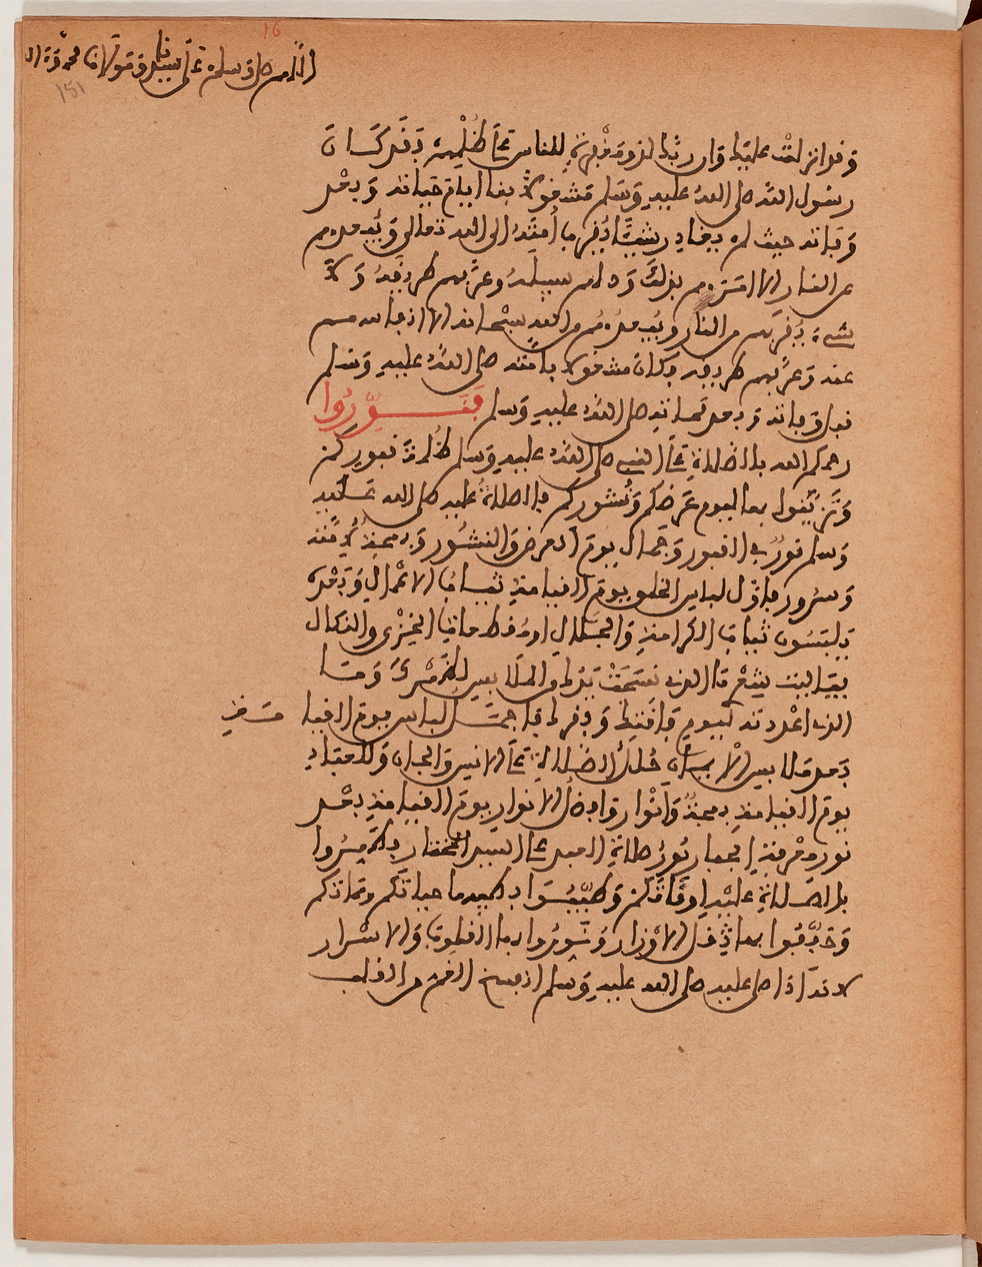 16
اللهم صل وسلم على سيدنا ومولانا محمد وءال
151
وقد انزلت عليك وان ربك لذو مغفرة للناس على ظلمهم فقد كان
رسول الله صلى الله عليه وسلم مشغولا بنا ايام حياته وبعد
وفاته حيث لم يغادر شيئا يقرب امته الى الله تعالى ويبعدهم
من النار الا امرهم بذلك ودلهم سبيله وعرفهم طريقه ولا
شيء يقربهم من النار ويبعدهم من الله سبحانه الا نهاهم
عنه وعرفهم طريقه فكان مشغولا بامته صلى الله عليه وسلم
قبل وفاته وبعد مماته صلى الله عليه وسلم فنوروا
رحمكم الله بالصلاة على النبي صلى الله عليه وسلم ظلمة قبوركم
وتزينوا بها ليوم عرضكم ونشوركم فالصلاة عليه صلى الله عليه
وسلم نور في القبور وجمال يوم العرض والنشور وبهجة
وسرور فاول لباس الخلق يوم القيامة ثياب الاعمال وبعده
يلبسون ثياب الكرامة والجلال او قطعات الخزي والنكال
فيا ليت شعري ما الذي نسجت يدك من الملابس لرمسك وما
الذي اعددته ليوم فاقتك وفقرك فاجمل لباس يوم القيامة
بعد ملابس الايمان حلل الصلاة على الانس والجان وللعباد
يوم القيامة بهجة وانوار وافضل الانوار يوم القيامة بعد
نور معرفة الجبار نور صلاة العبد على السيد المختار فعمروا
بالصلاة عليه اوقاتكم وطيبوا بطيبها حياتكم ومماتكم
وخففوا بها ثقل الاوزار ونوروا بها القلوب والاسرار
لانه اذا صلى عليه صلى الله عليه وسلم انفسخ الغم من القلب